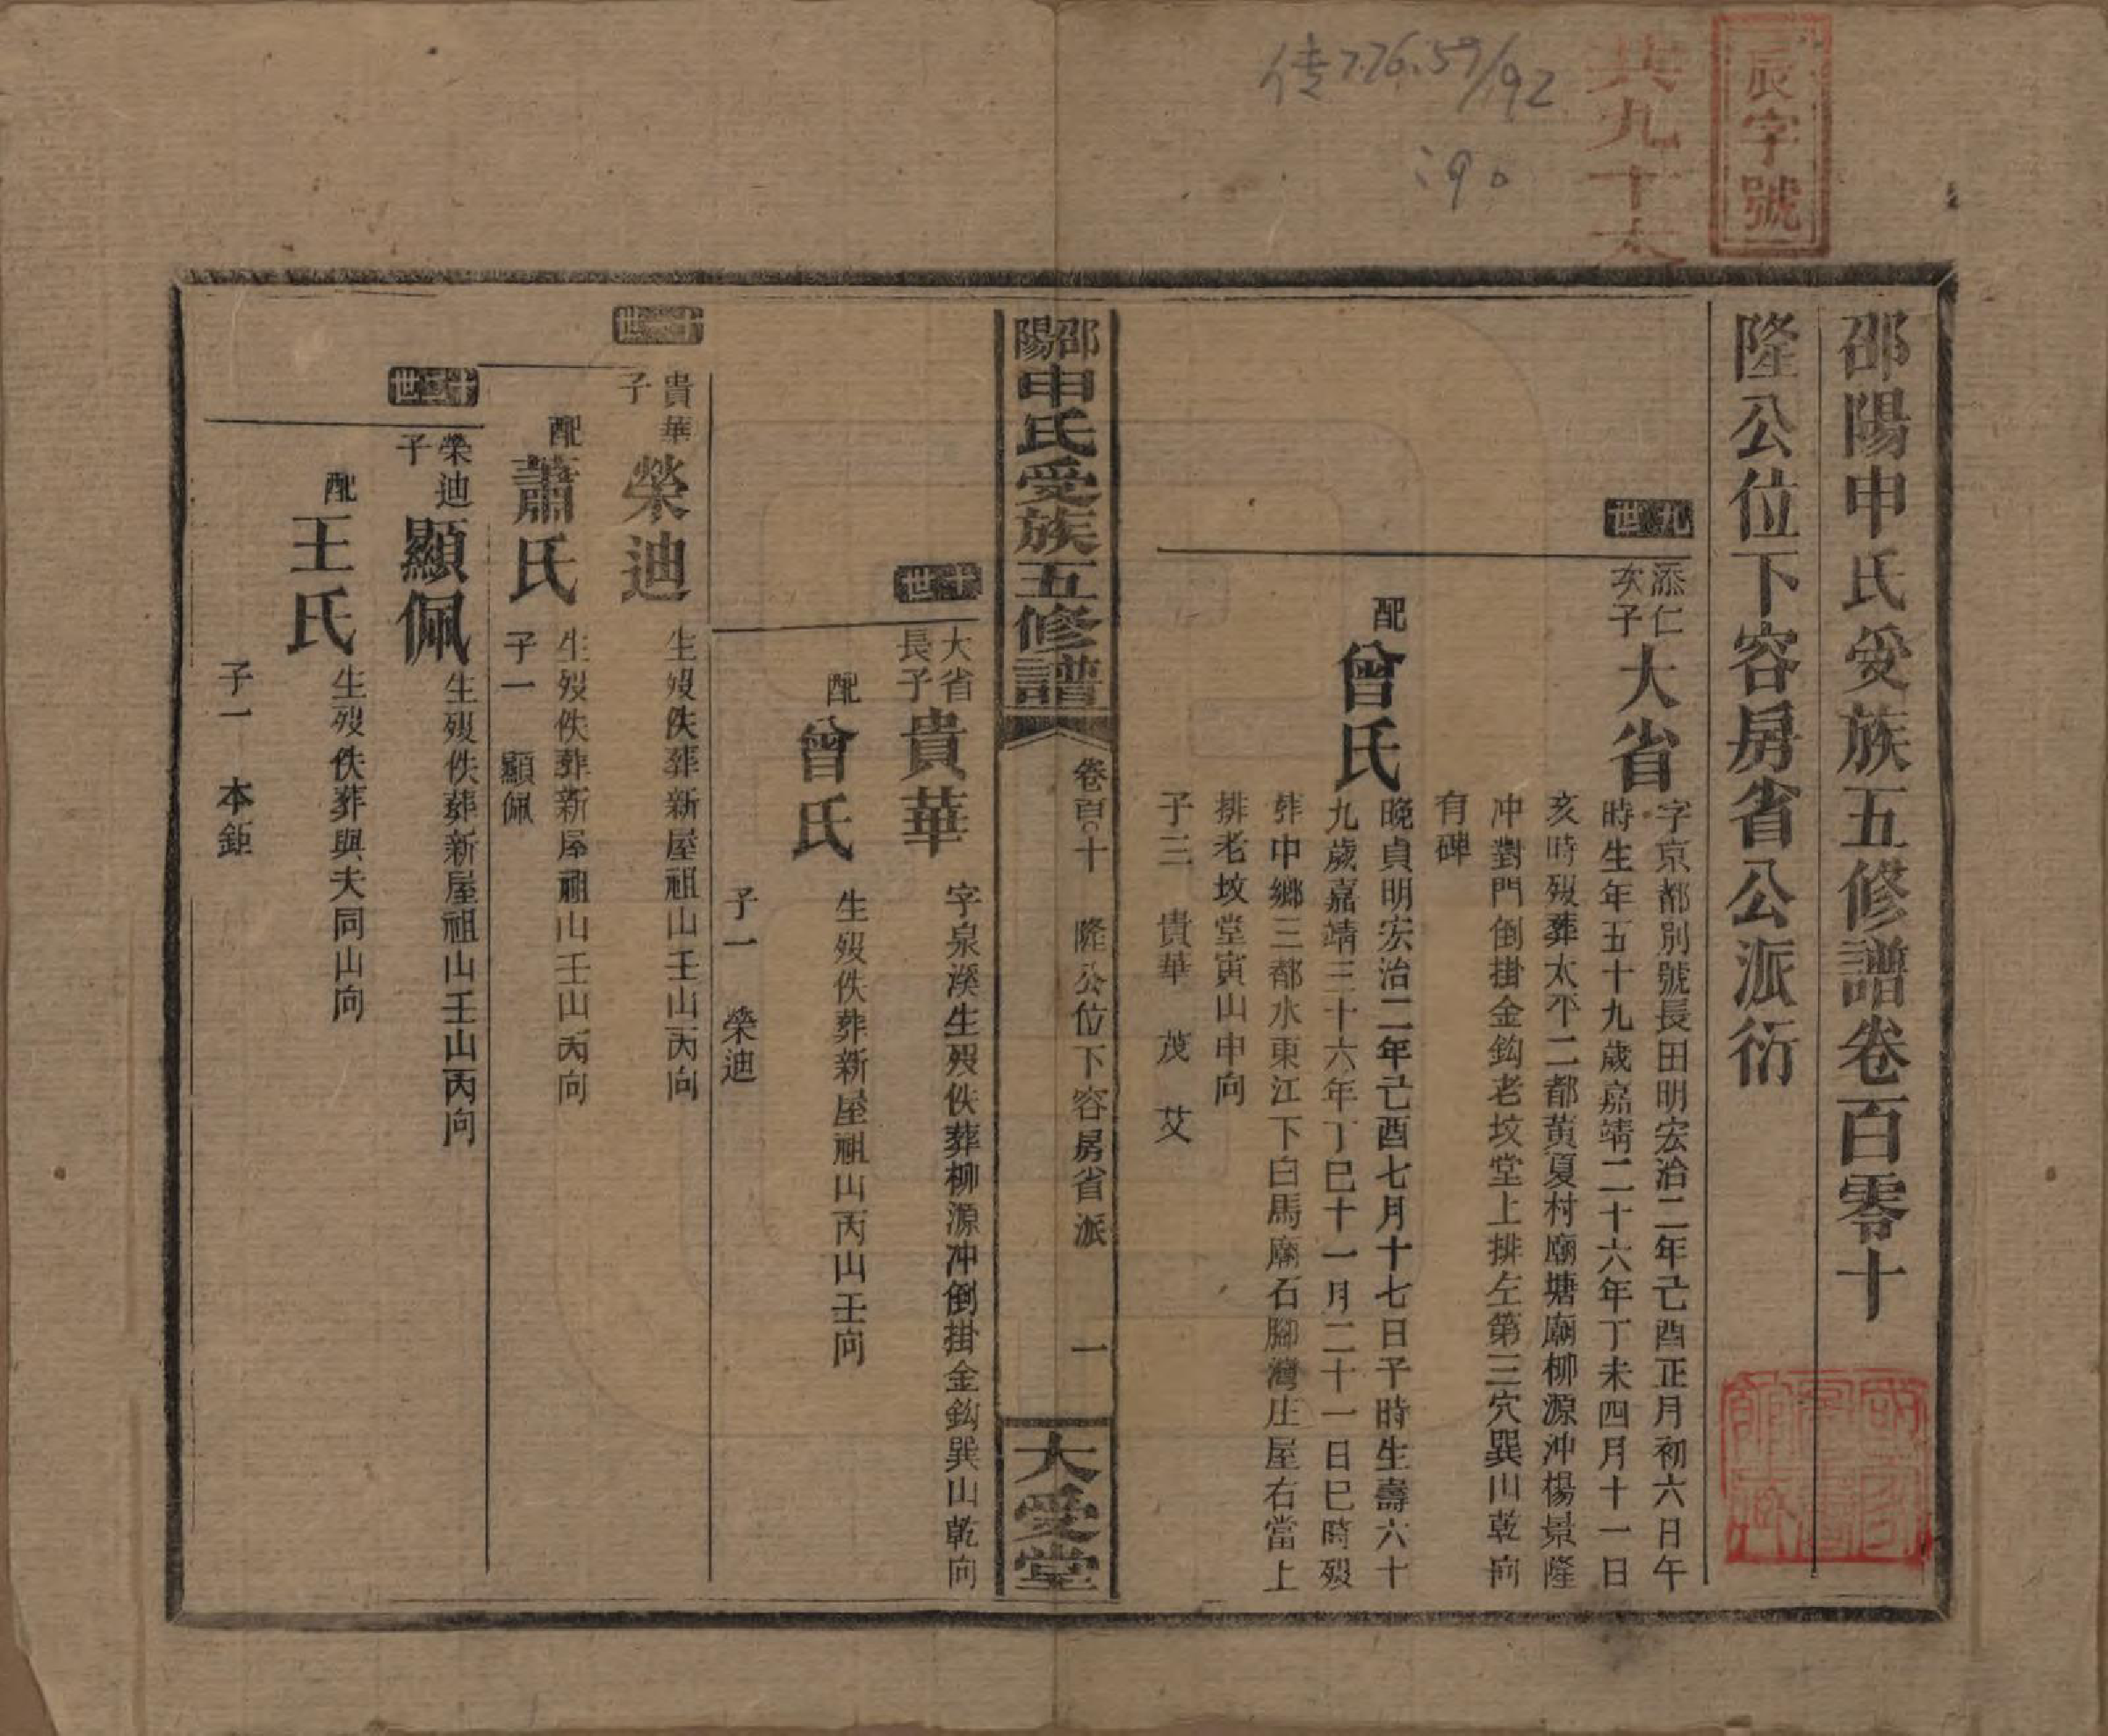 辰字號
共九十六
传776.59/192
:90
邵陽申氏受族五修譜卷百零十
隆公位下容房省公派衍
九世
添仁次子
大省
字京都別號長田明宏治二年己酉正月初六日午
時生年五十九歲嘉靖二十六年丁未四月十一日
亥時歿葬太平二都黃夏村廟塘廟柳源沖楊景隆
沖對門倒掛金鈎老坟堂上排左第三穴巽山乾向
有碑
配
曾氏
晚貞明宏治二年己酉七月十七日子時生壽六十
九歲嘉靖三十六年丁巳十一月二十一日巳時歿
葬中鄉三都水東江下白馬廟石腳灣庄屋右當上
排老坟堂寅山申向
子三 貴華 茂 艾
邵陽申氏受族五修譜
卷百〇十 隆公位下容房省派 一
大受堂
十世
大省長子
貴華
字泉溪生歿佚葬柳源冲倒掛金鈎巽山乾向
配
曾氏
生歿佚葬新屋祖山丙山壬向
子一 榮迪
十一世
貴華子
榮迪
生歿佚葬新屋祖山壬山丙向
配
蕭氏
生歿佚葬新屋祖山壬山丙向
子一 顯佩
十二世
榮迪子
顯佩
生歿佚葬新屋祖山壬山丙向
配
王氏
生歿佚葬與夫同山向
子一 本鉅